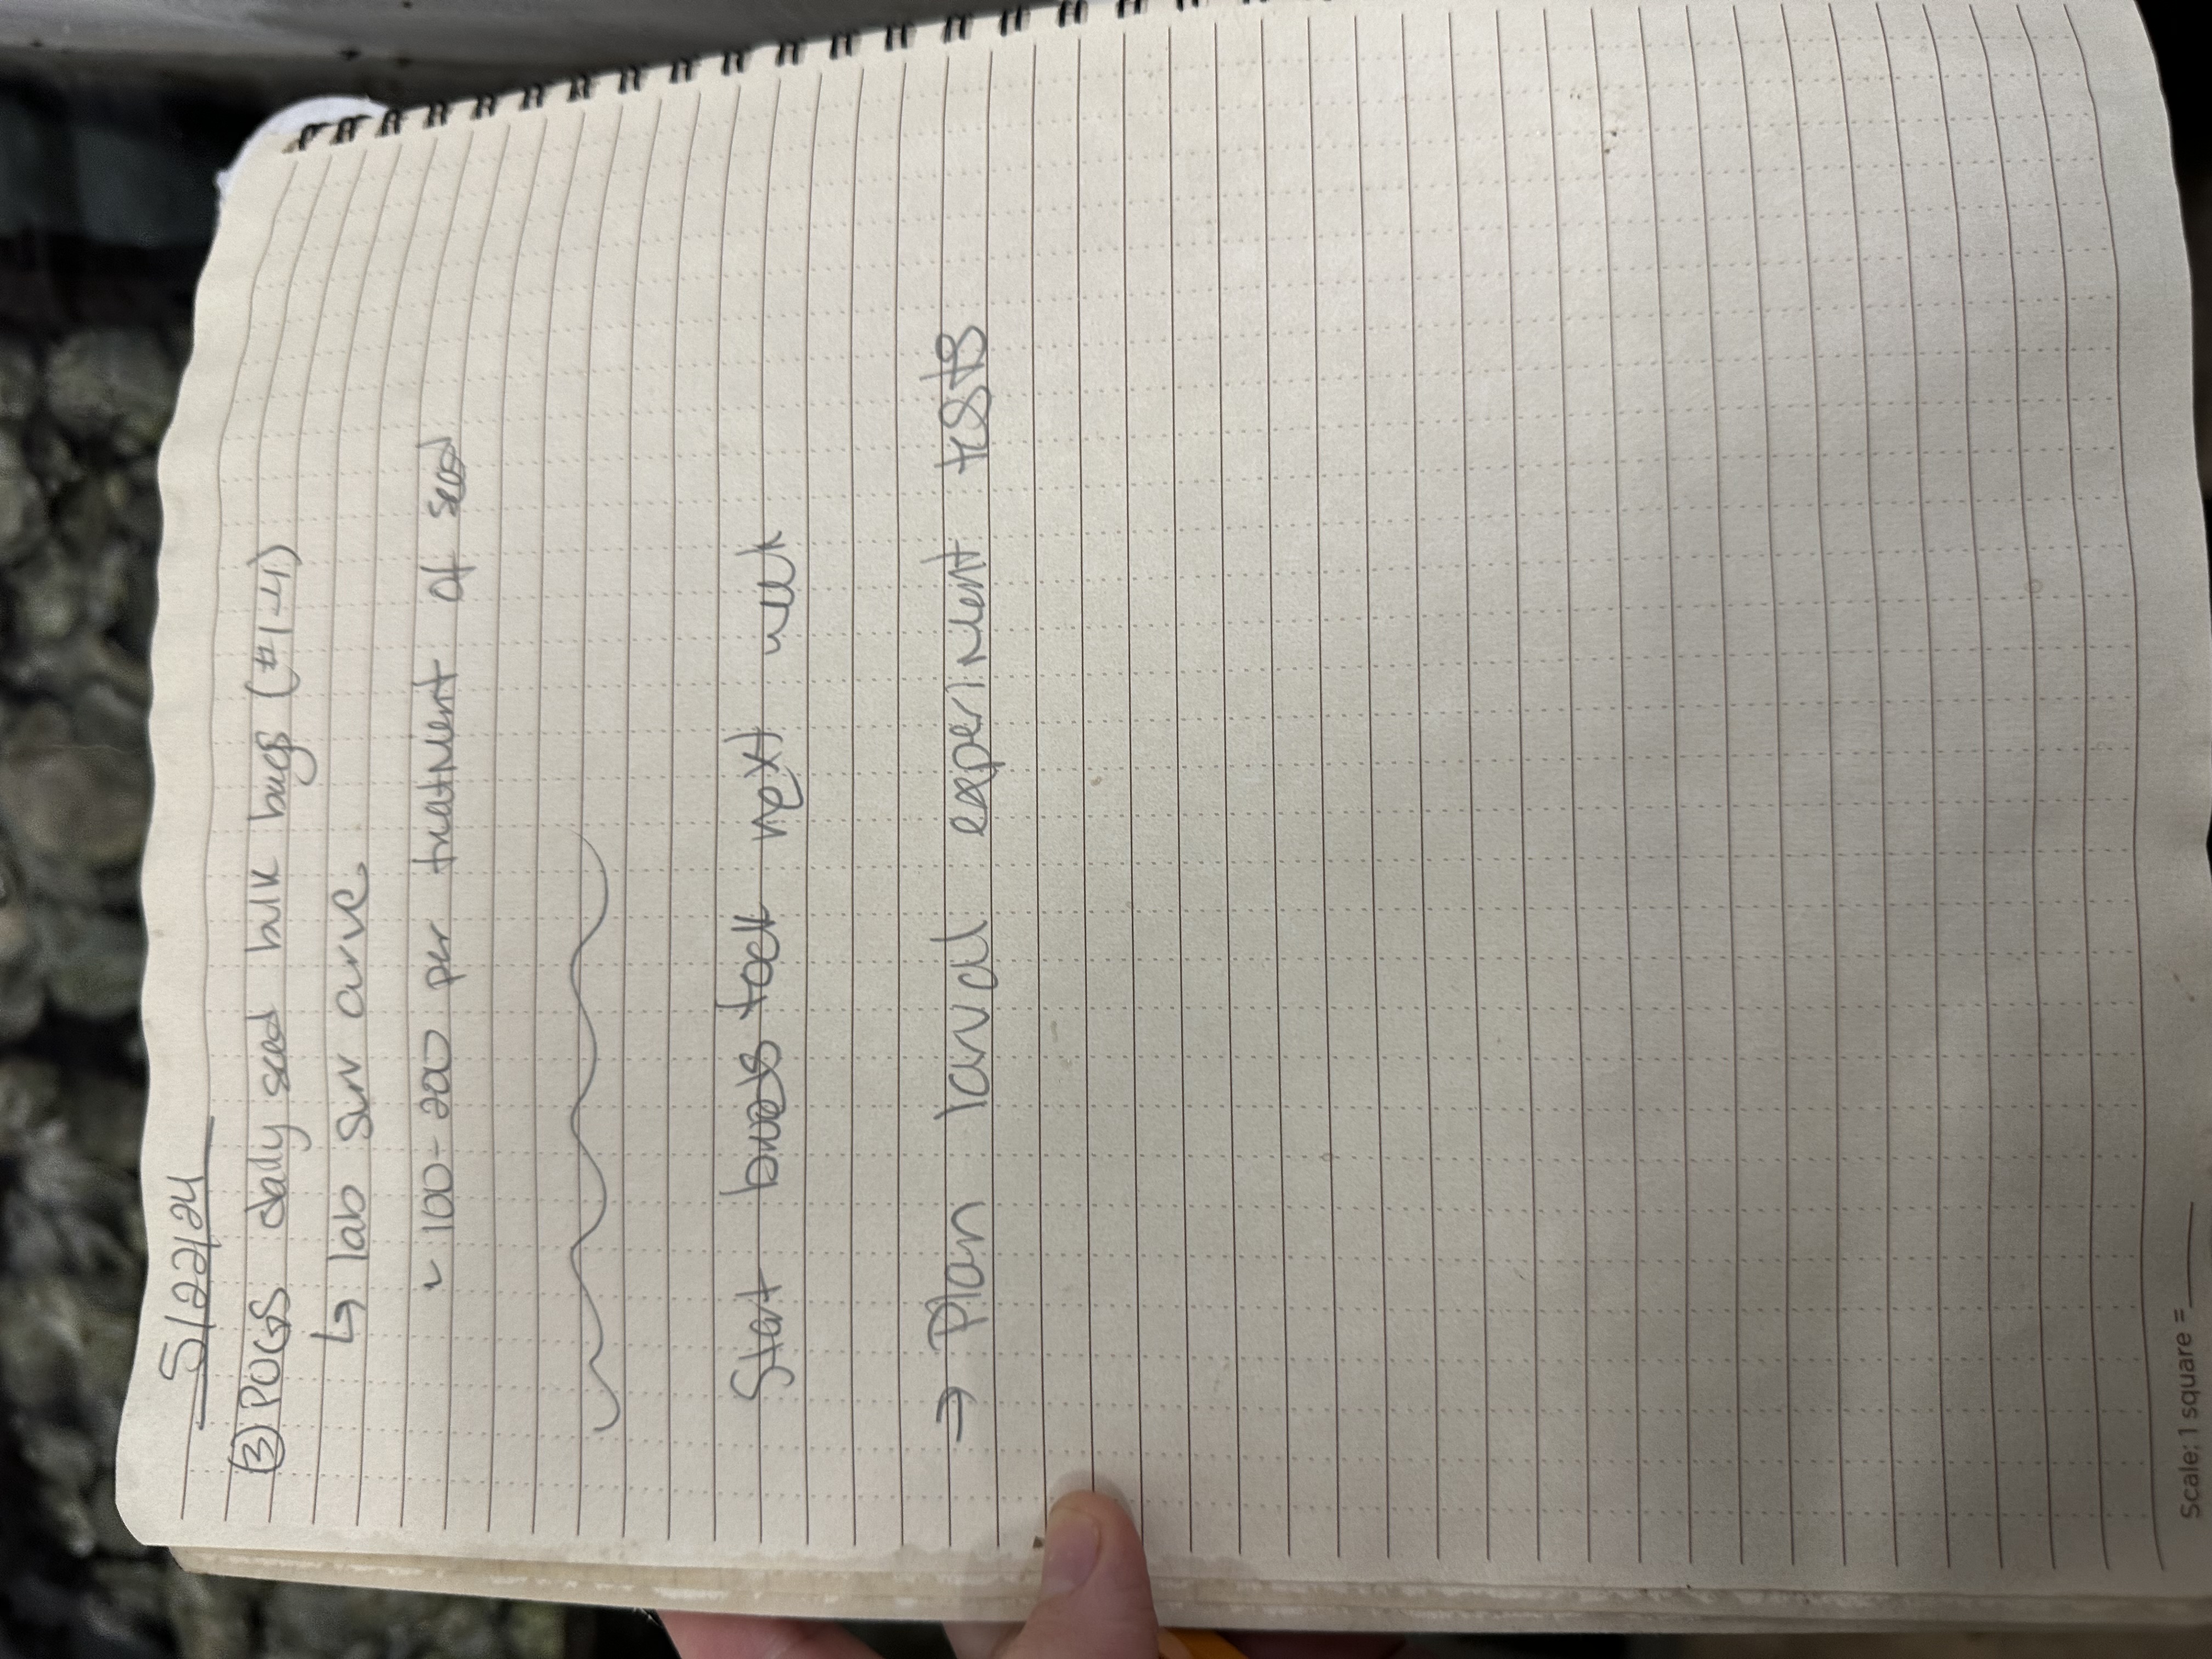 5/22/24
③ POGS daily seed bulk bags (#1-4)
↳ lab surv curve
~ 100-200 per treatment of seed
Start broodstock next week
→ Plan larval experiment tests
Scale: 1 square = ______